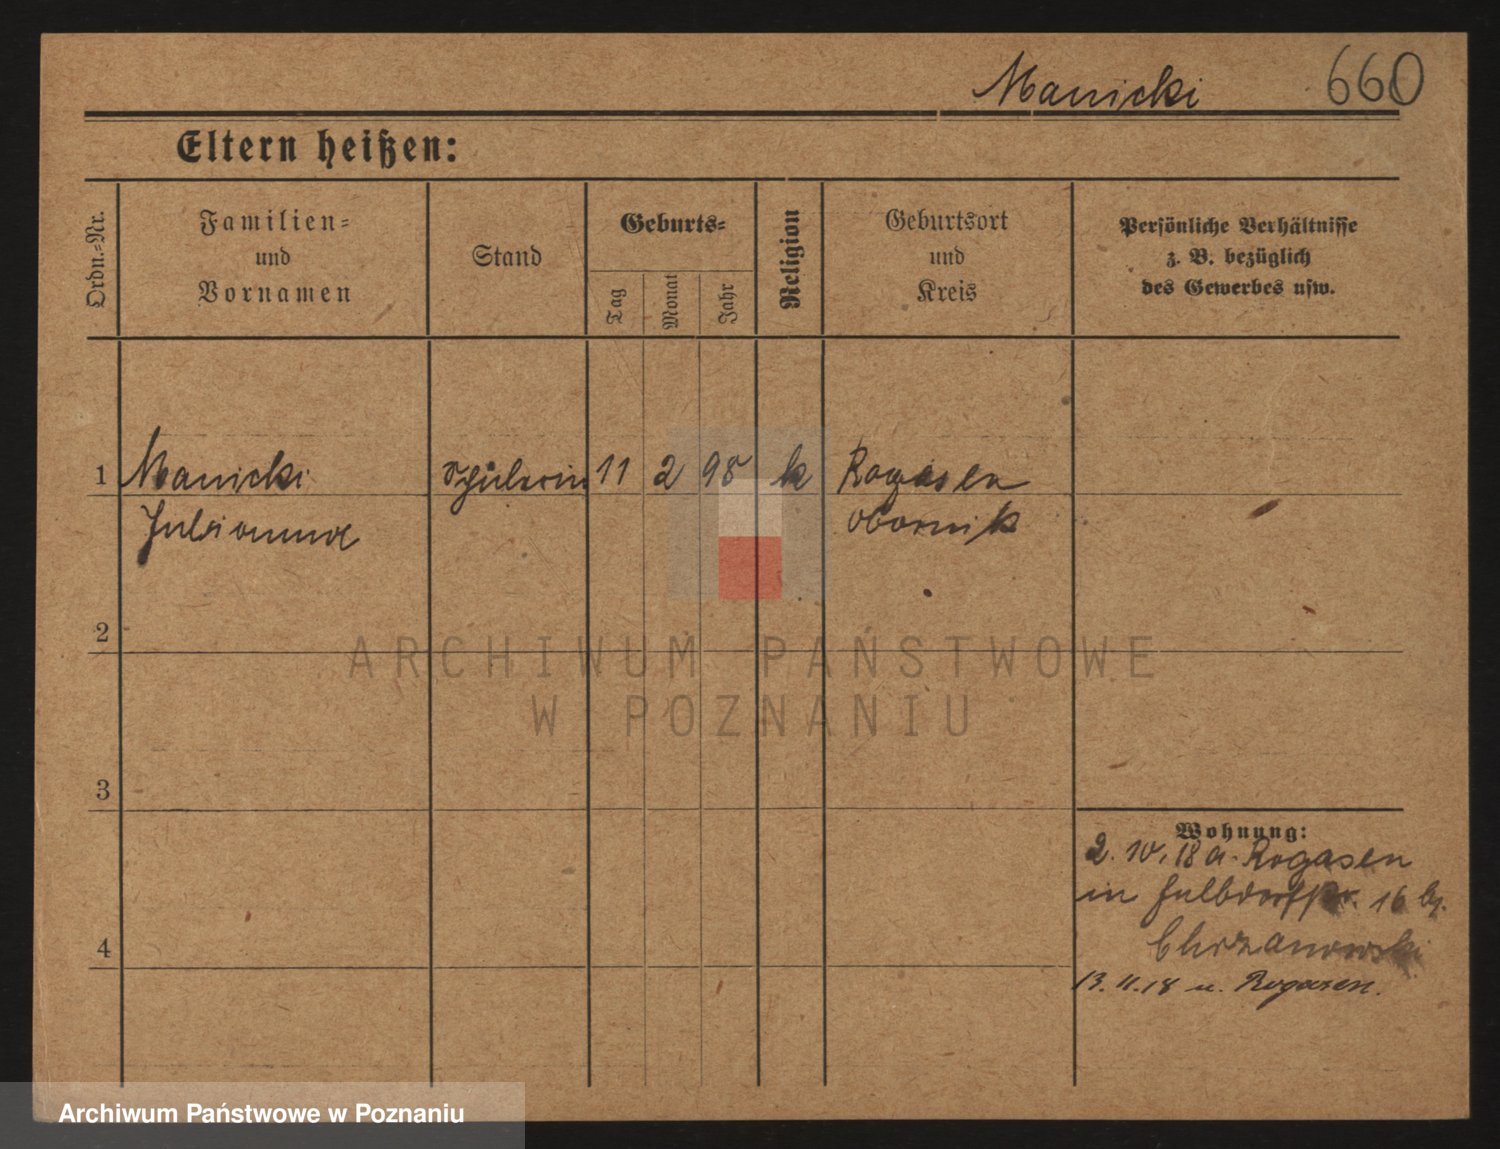 Manicki 660
Eltern heißen:
Ordn.-Nr.
Familien-
und
Vornamen
Stand
Geburts-
Tag
Monat
Jahr
Religion
Geburtsort
und
Kreis
Persönliche Verhältnisse
z. B. bezüglich
des Gewerbes usw.
1 Manicki Schülerin 11 2 98 k Rogasen
Julianna Obornik
2
ARCHIWUM PAŃSTWOWE
W POZNANIU
3
Wohnung:
2. 10. 18 a. Rogasen
in 16 bj.
Chrzanowski
4
13. 11. 18 n. Rogasen.
Archiwum Państwowe w Poznaniu